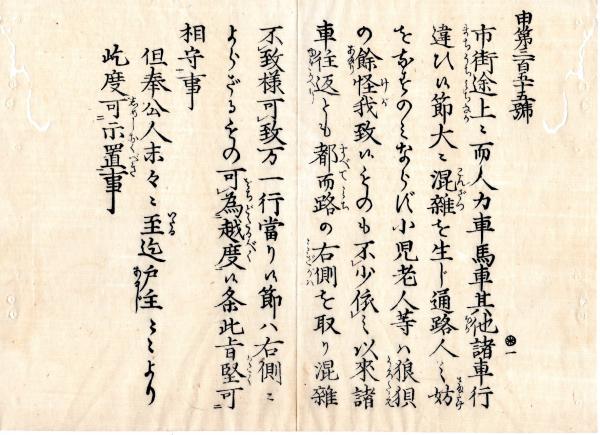 申第三百五十五號
市街途上ニ而人力車馬車其他諸車行
違ひ候節大ニ混雑を生し通路人之妨
をなすのミならす小児老人等ハ狼狽
の餘怪我致候ものも不少依之以來諸
車往返とも都而路の右側を取り混雑
不致様可致万一行當り候節ハ右側ニ
よらざるもの可為越度候条此旨堅可
相守事
但奉公人末々ニ至迄戸主ゟ
屹度可示置事